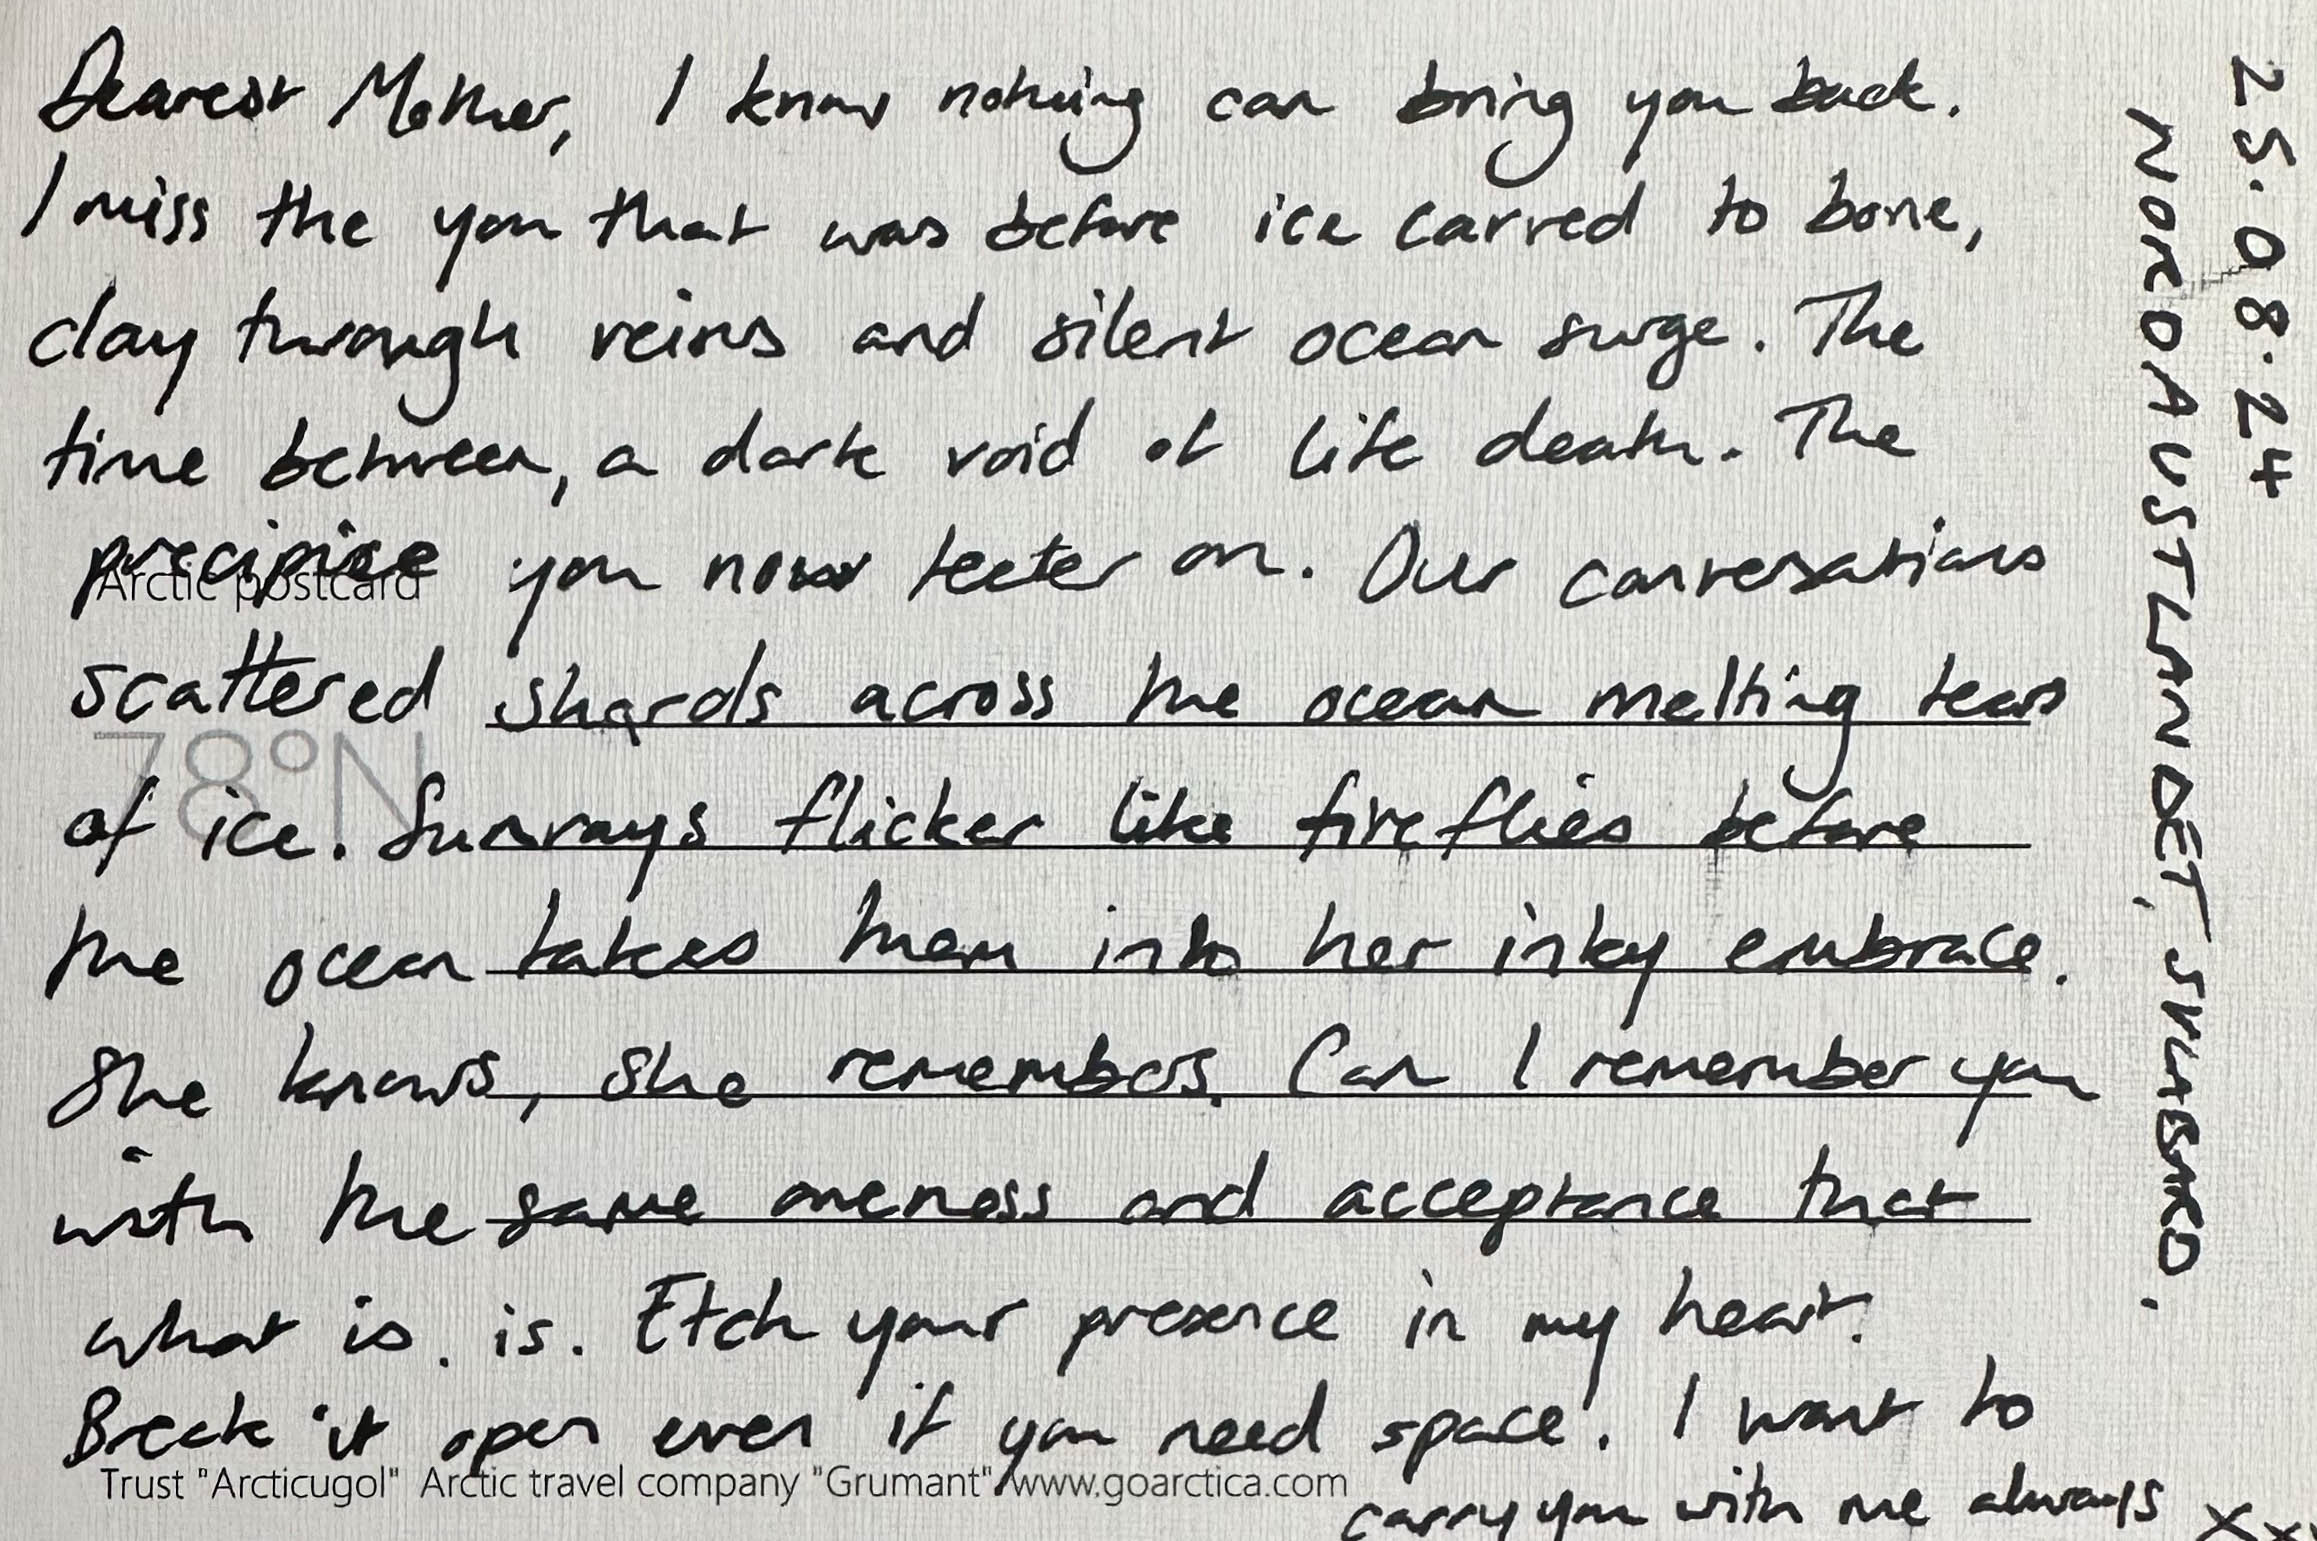 Dearest Mother, I know nothing can bring you back.
I miss the you that was before ice carved to bone,
clay through veins and silent ocean surge. The
time between, a dark void of life death. The
precipice you now teeter on. Our conversations
Arctic postcard
scattered shards across the ocean melting tears
78°N
of ice. Sunrays flicker like fireflies before
the ocean takes them into her inky embrace.
She knows, she remembers. Can I remember you
with the same oneness and acceptance that
what is. is. Etch your presence in my heart.
Break it open even if you need space. I want to
Trust "Arcticugol" Arctic travel company "Grumant" www.goarctica.com
carry you with me always xx
25.08.24
NORDAUSTLANDET, SVALBARD.